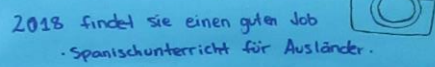 2018 findet sie einen guten Job
. Spanischunterricht für Ausländer.